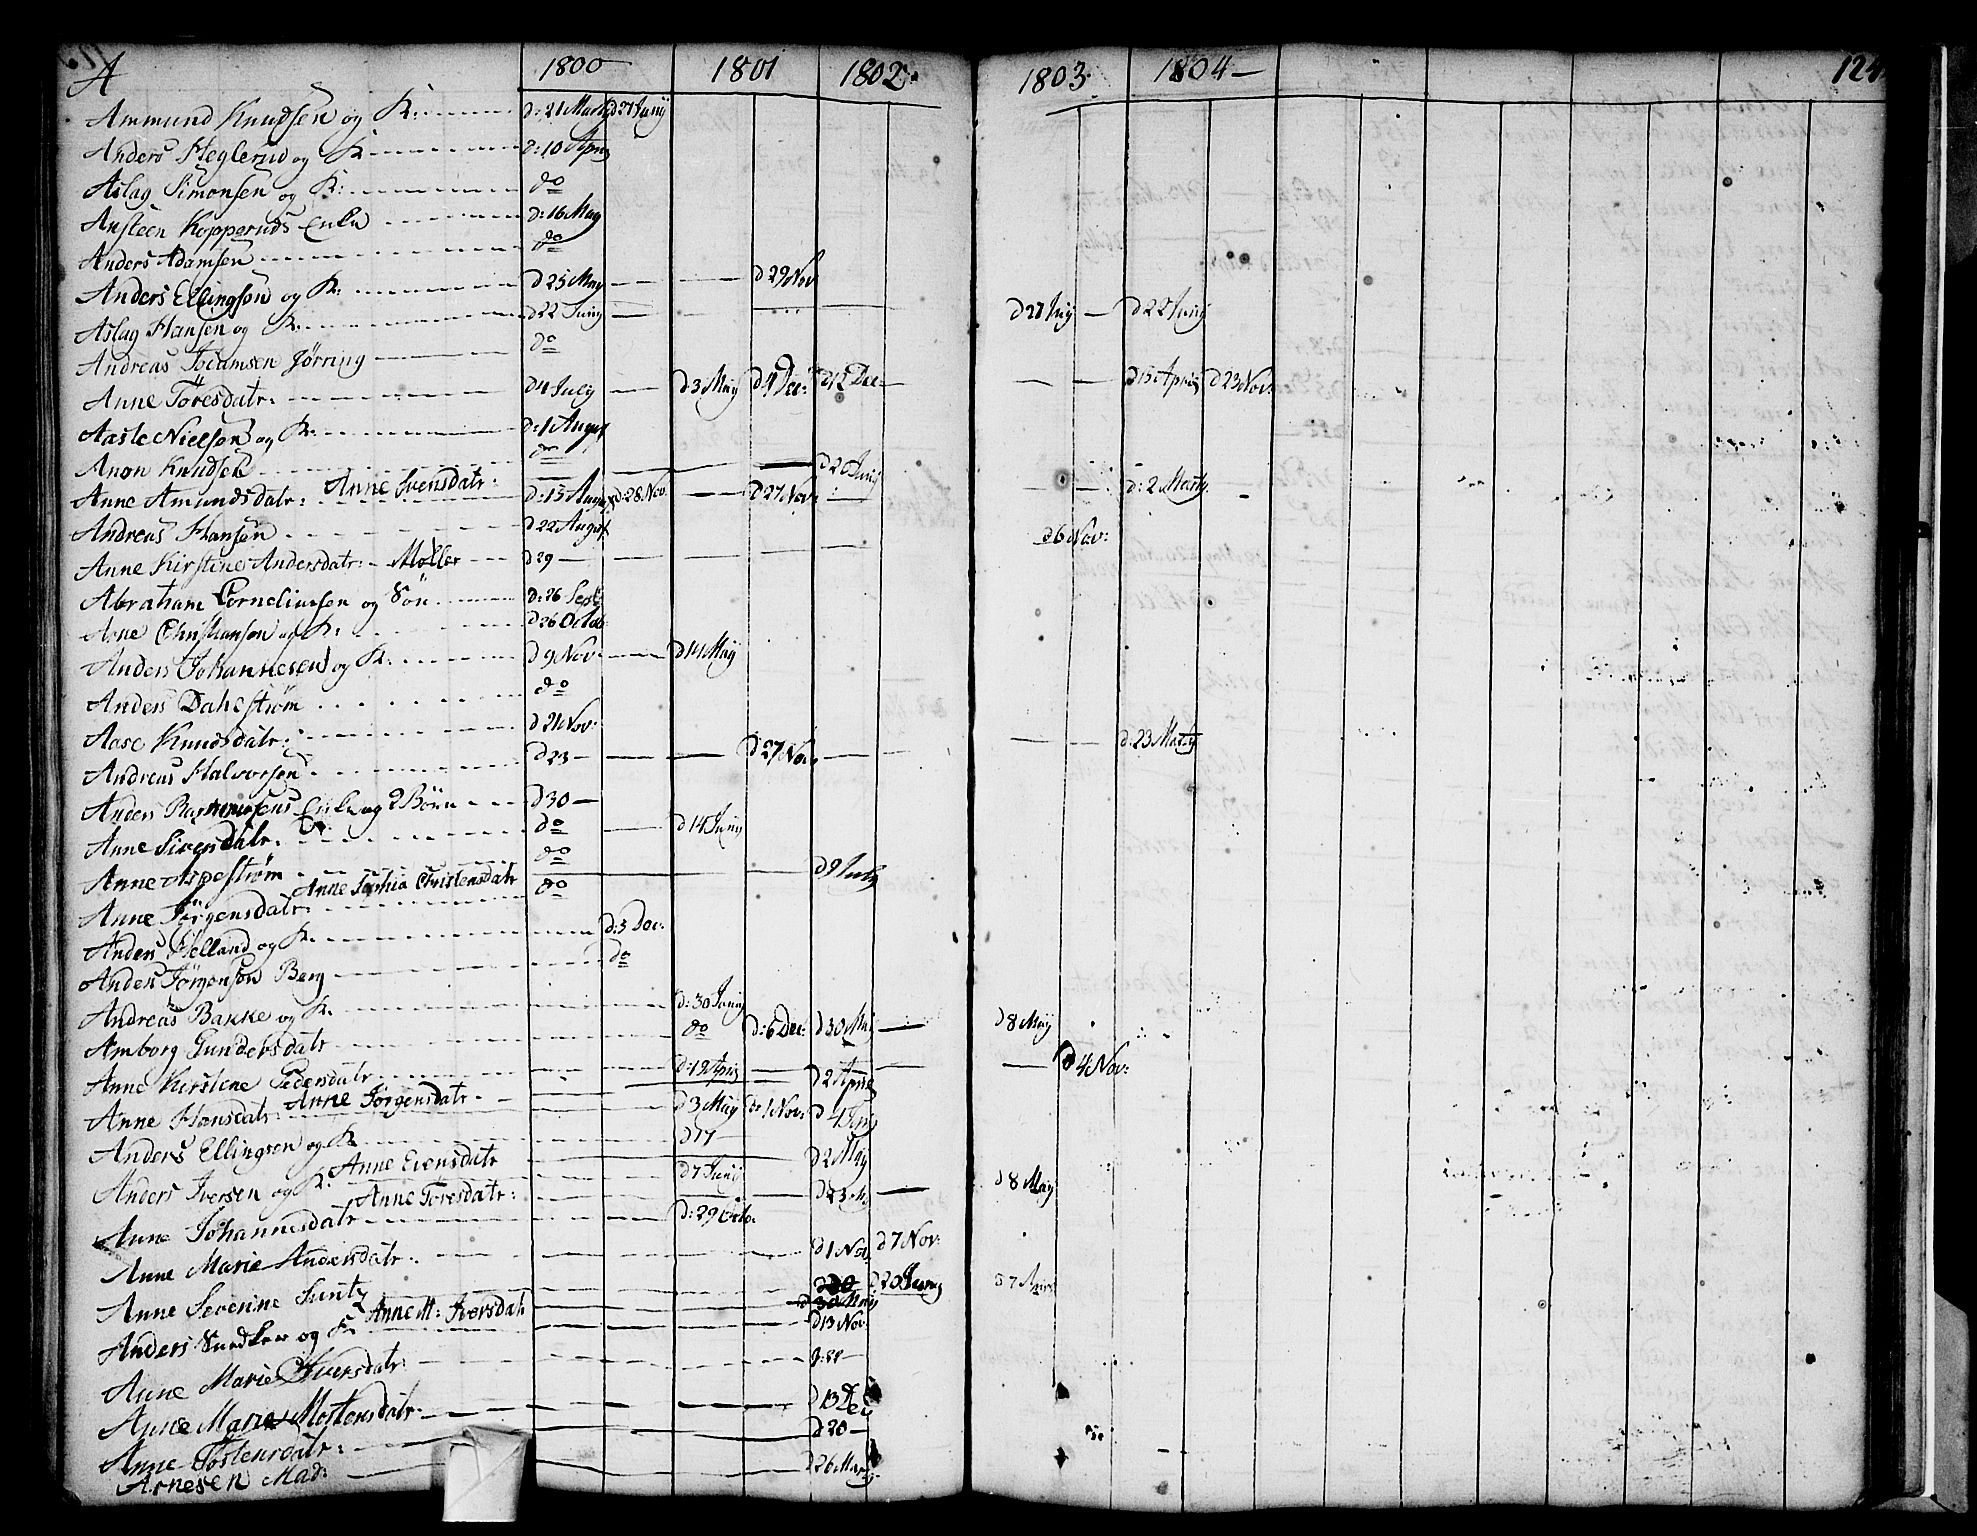 A 1800 1801 1802. 1803. 1804 124
Ammund Knudsen og K: d: 21 Marty d 27 Junij
Anders Heglerud og K d: 10 April
Aslag Simonsen og K: do
Ansteen Kopperuds Enke d: 16 May
Anders Adamsen do
Anders Ellingsen og K: d 25 May — — d 29 Nov
Aslag Hansen og K. d 22 Juny — d 22 Juny
Andreas Jörring do
Anne Toresdatr: d 4 July — d 3 May d 4 Dec: d 12 Dec: — — — d 15 April d 23 Nov:
Nielsen og K. d: 1 August
Knudsen
Anne Amundsdatr: Anne Svensdatr: d: 15 d: 28 Nov. — d 27 Nov: d 2 Junij — — d: 2 Marty.
Andreas Hansen d 22 August d 6 Nov:
Anne Kirstine Andersdatr: Møller d 29 —
Abraham Corneliussen og Sön d: 26 Sept
Arne Christiansen og K: d 26 Octob:
Anders Johannesen og K: d 9 Nov — d 14 May
Anders Dahlström do
Aase Knudsdatr: d 21 Nov:
Andreas Halvorsen d 23 — — — d 27 Nov. — — — — d: 23 Marty
Anders Rasmussens Enke og 2 Börn d 30 —
Anne Siversdatr. do — d 14 Juny
Anne Aspeström do
Anne Jörgensdatr: Anne Sophia Christensdatr do — d 9 July
Anders Helland og K. d: 5 Dec:
Anders Jörgensen Berg do
Andreas Bakke og K. d: 30 Juny
Amborg Gundersdatr do d: 6 Dec: d 30 May — d 8 Maij
Anne Kirstene Pedersdatr d: 19 April — d 2 April — — d 4 Nov:
Anne Hansdatr: Anne Jörgensdatr d 3 Maij 1 Nov: d 4 Juny
Anders Ellingsen og K d 17 —
Anders Iversen og K. Anne Evensdatr d 7 Junij d 2 Maij
Anne Johannesdatr Anne Toresdatr: d: 29 Octo. d 23 — d 8 May
Anne Marie Andersdatr: d 1 Nov. d 7 Nov:
Anne Severine d 20 Juny
Anders og K Anne M: Iversdatr d 30 Maij d 13 Nov.
Anne Marie Iversdatr:
Anne Marie Mortensdatr: d 13
Anne Tostensdatr: d 20 —
Arnesen Mad: d 26 Marty